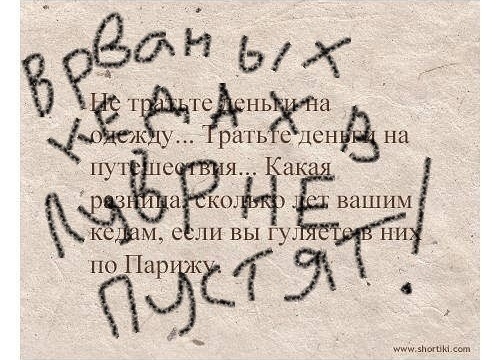 В РВаНЫХ
КЕДАХ В
ЛУВР НЕ
ПУСТЯТ!
Не тратьте деньги на
одежду... Тратьте деньги на
путешествия... Какая
разница, сколько лет вашим
кедам, если вы гуляете в них
по Парижу.
www.shortiki.com